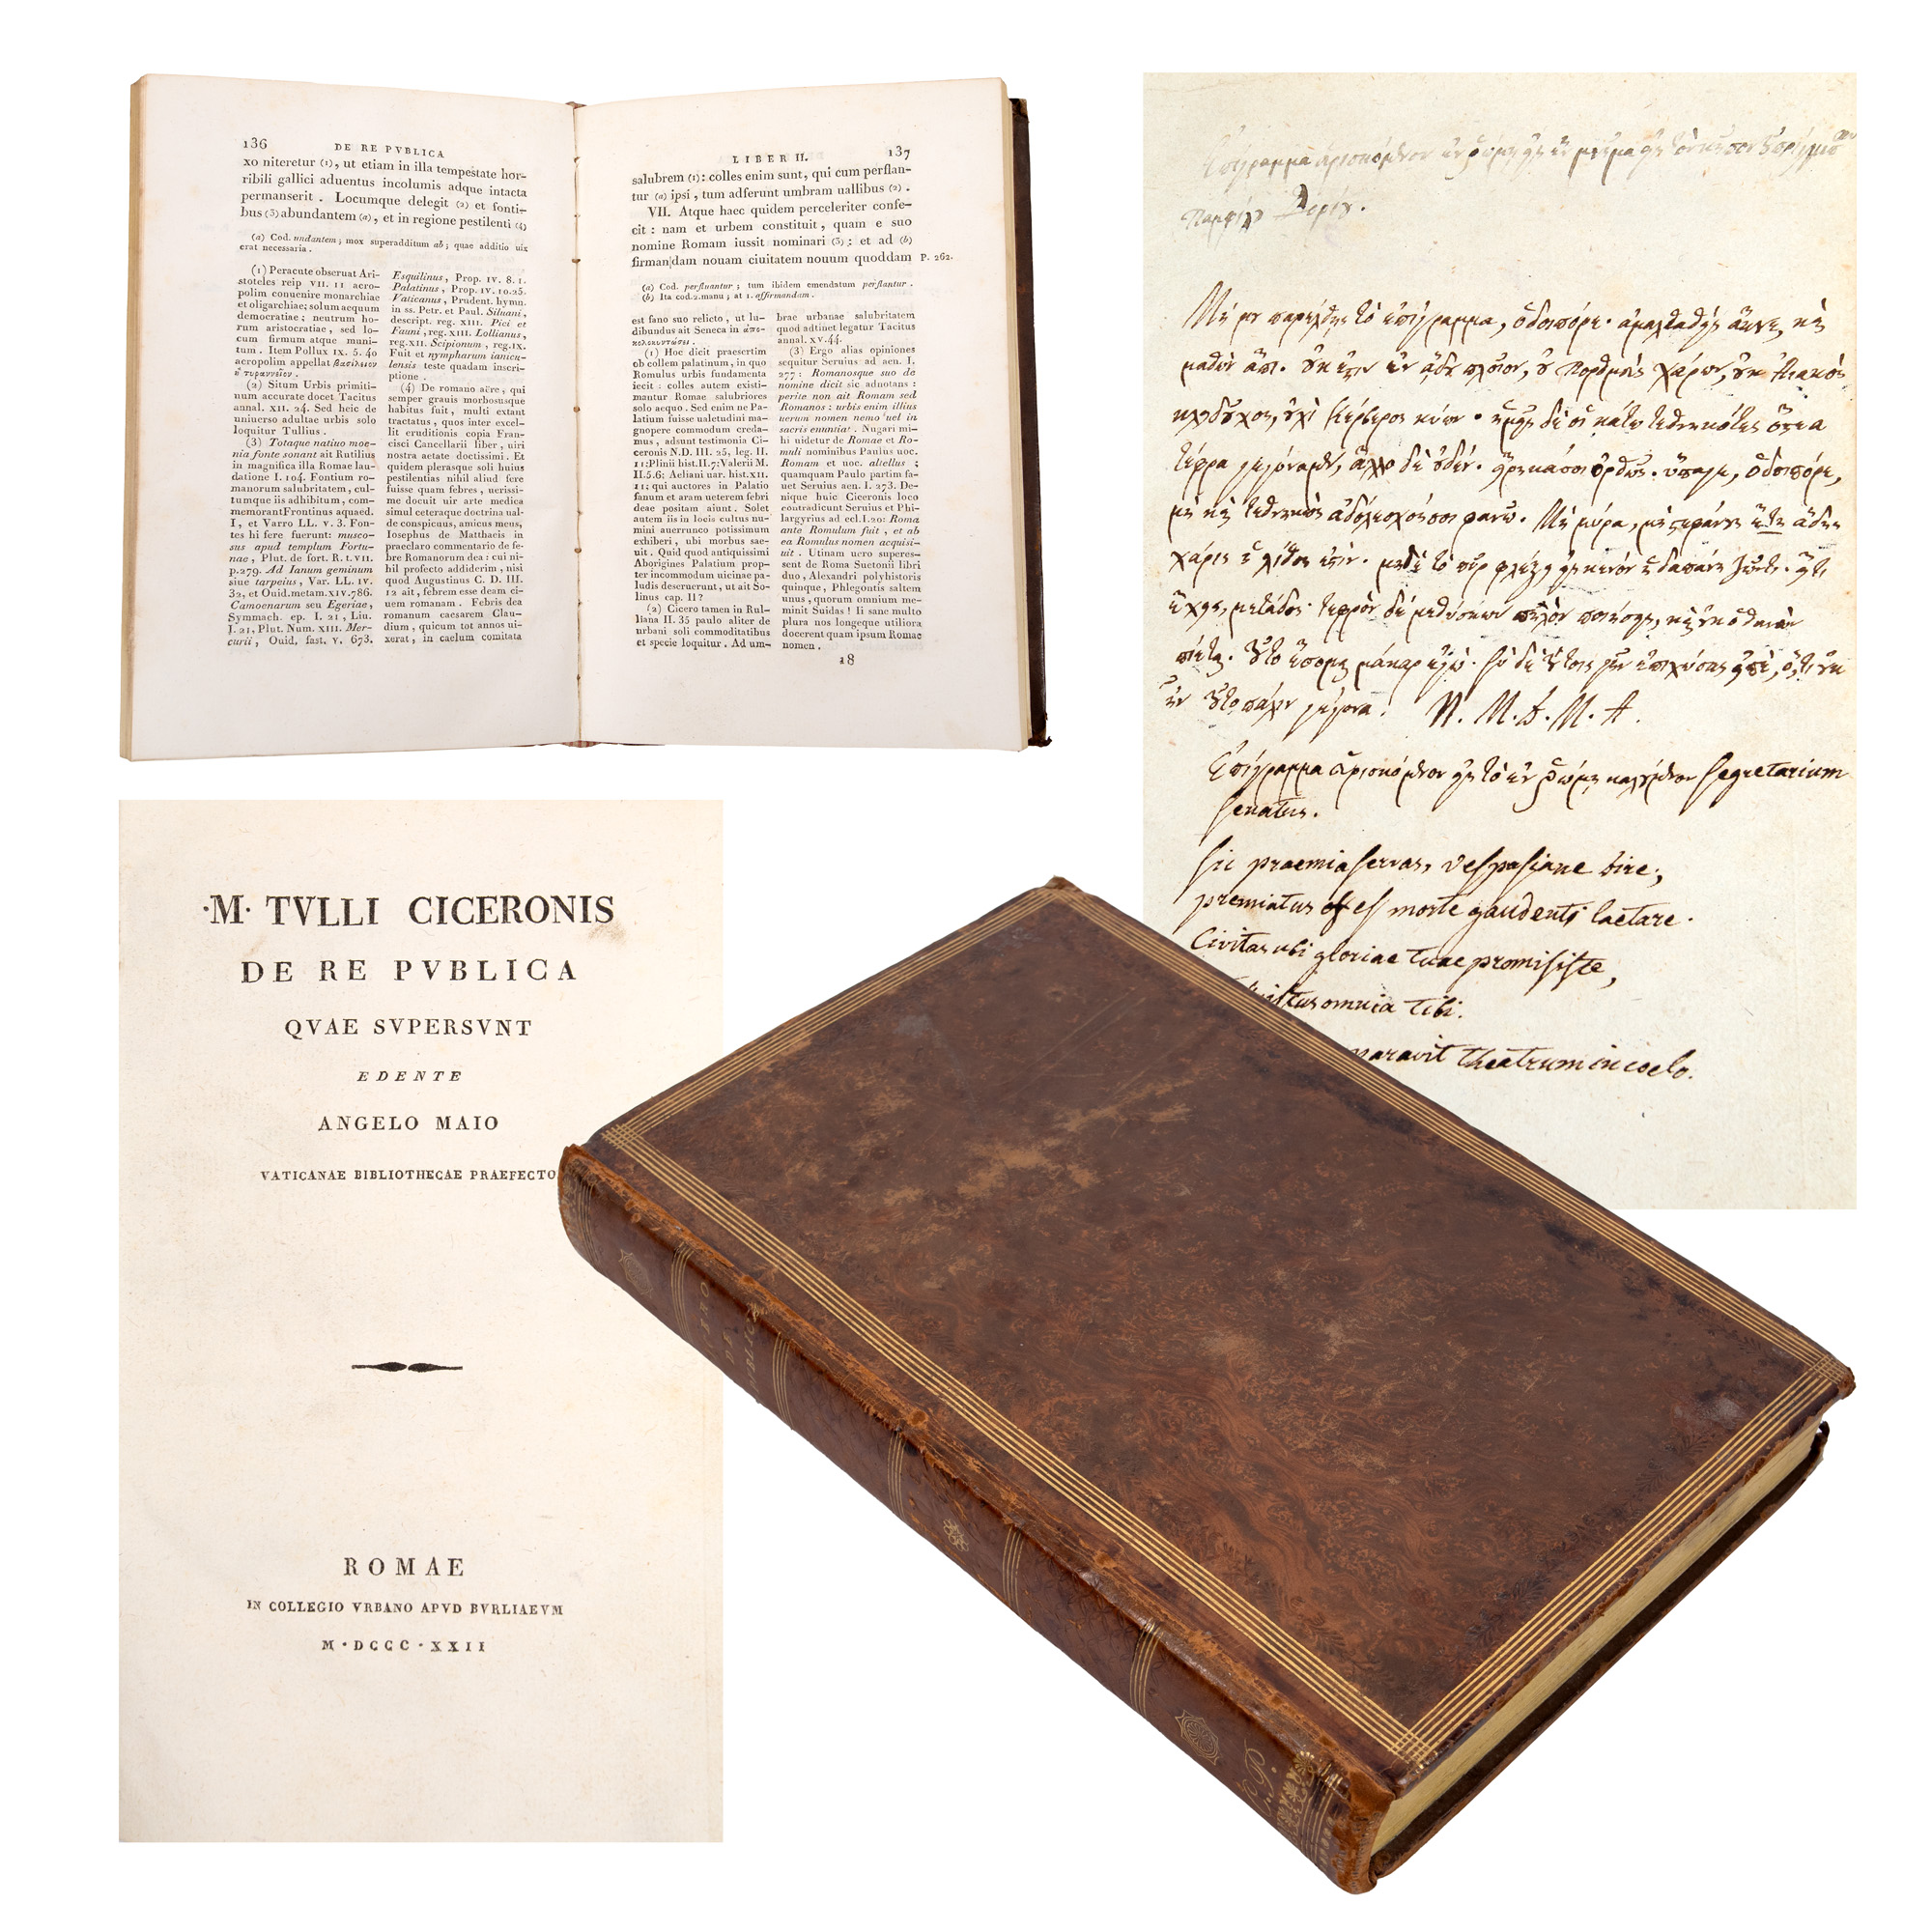 136
DE RE PVBLICA
xo niteretur (1), ut etiam in illa tempestate hor-
ribili gallici aduentus incolumis adque intacta
permanserit . Locumque delegit (2) et fonti-
bus (3) abundantem (a), et in regione pestilenti (4)
(a) Cod. undantem; mox superadditum ab; quae additio uix
erat necessaria .
(1) Peracute obseruat Ari-
stoteles reip VII. 11 acro-
polim conuenire monarchiae
et oligarchiae; solum aequum
democratiae; neutrum ho-
rum aristocratiae, sed lo-
cum firmum atque muni-
tum . Item Pollux IX. 5. 40
acropolim appellat βασίλειον
ἢ τυραννεῖον .
(2) Situm Urbis primiti-
num accurate docet Tacitus
annal. XII. 24. Sed heic de
uniuerso adultae urbis solo
loquitur Tullius .
(3) Totaque natiuo moe-
nia fonte sonant ait Rutilius
in magnifica illa Romae lau-
datione I. 104. Fontium ro-
manorum salubritatem, cul-
tumque iis adhibitum, com-
memorant Frontinus aquaed.
I, et Varro LL. v. 3. Fon-
tes hi fere fuerunt: musco-
sus apud templum Fortu-
nae, Plut. de fort. R. t. VII.
p.279. Ad Ianum geminum
siue tarpeius, Var. LL. IV.
32, et Ouid.metam.XIV.786.
Camoenarum seu Egeriae,
Symmach. ep. I. 21, Liu.
I. 21, Plut. Num. XIII. Mer-
curii, Ouid. fast. V. 673.
Esquilinus, Prop. IV. 8. 1.
Palatinus, Prop. IV. 10.25.
Vaticanus, Prudent. hymn.
in ss. Petr. et Paul. Siluani,
descript. reg. XIII. Pici et
Fauni, reg. XIII. Lollianus,
reg.XII. Scipionum, reg.IX.
Fuit et nympharum ianicu-
lensis teste quadam inscri-
ptione .
(4) De romano aëre, qui
semper grauis morbosusque
habitus fuit, multi extant
tractatus, quos inter excel-
lit eruditionis copia Fran-
cisci Cancellarii liber, uiri
nostra aetate doctissimi. Et
quidem plerasque soli huius
pestilentias nihil aliud fere
fuisse quam febres, uerissi-
me docuit uir arte medica
simul ceteraque doctrina ual-
de conspicuus, amicus meus,
Iosephus de Matthaeis in
praeclaro commentario de fe-
bre Romanorum dea: cui ni-
hil profecto addiderim, nisi
quod Augustinus C. D. III.
12 ait, febrem esse deam ci-
uem romanam . Febris dea
romanum caesarem Clau-
dium, quicum tot annos ui-
xerat, in caelum comitata
LIBER II.
137
salubrem (1): colles enim sunt, qui cum perflan-
tur (a) ipsi, tum adferunt umbram uallibus (2) .
VII. Atque haec quidem perceleriter confe-
cit : nam et urbem constituit, quam e suo
nomine Romam iussit nominari (3); et ad (b)
firman|dam nouam ciuitatem nouum quoddam P. 262.
(a) Cod. perfluantur ; tum ibidem emendatum perflantur .
(b) Ita cod.2.manu ; at 1. affirmandam .
est fano suo relicto, ut lu-
dibundus ait Seneca in ἀπο-
κολοκυντώσει .
(1) Hoc dicit praesertim
ob collem palatinum, in quo
Romulus urbis fundamenta
iecit : colles autem existi-
mantur Romae salubriores
solo aequo . Sed enim ne Pa-
latium fuisse ualetudini ma-
gnopere commodum creda-
mus, adsunt testimonia Ci-
ceronis N.D. III. 25, leg. II.
11; Plinii hist.II.7; Valerii M.
II.5.6; Aeliani uar. hist.XII.
11; qui auctores in Palatio
fanum et aram ueterem febri
deae positam aiunt. Solet
autem iis in locis cultus nu-
mini auerrunco potissimum
exhiberi, ubi morbus sae-
uit . Quid quod antiquissimi
Aborigines Palatium prop-
ter incommodum uicinae pa-
ludis deseruerunt, ut ait So-
linus cap. II?
(2) Cicero tamen in Rul-
liana II. 35 paulo aliter de
urbani soli commoditatibus
et specie loquitur . Ad um-
brae urbanae salubritatem
quod adtinet legatur Tacitus
annal. XV.44.
(3) Ergo alias opiniones
sequitur Seruius ad aen. I.
277 : Romanosque suo de
nomine dicit sic adnotans :
perite non ait Romam sed
Romanos : urbis enim illius
uerum nomen nemo uel in
sacris enuntiat . Nugari mi-
hi uidetur de Romae et Ro-
muli nominibus Paulus uoc.
Romam et uoc. aliellus ;
quamquam Paulo partim fa-
uet Seruius aen. I. 273. De-
nique huic Ciceronis loco
contradicunt Seruius et Phi-
largyrius ad ecl.I.20: Roma
ante Romulum fuit, et ab
ea Romulus nomen acquisi-
uit . Utinam uero superes-
sent de Roma Suetonii libri
duo, Alexandri polyhistoris
quinque, Phlegontis saltem
unus, quorum omnium me-
minit Suidas ! Ii sane multo
plura nos longeque utiliora
docerent quam ipsum Romae
nomen .
18
·M· TVLLI CICERONIS
DE RE PVBLICA
QVAE SVPERSVNT
EDENTE
ANGELO MAIO
VATICANAE BIBLIOTHECAE PRAEFECTO
ROMAE
IN COLLEGIO VRBANO APVD BVRLIAEVM
M·DCCC·XXII
Μή μου παρέλθῃς τὸ ἐπίγραμμα, ὁδοιπόρε·
μαθὼν ἄπι. οὐκ ἔστι ἐν ᾅδῃ πλοῖον, οὐ πορθμεὺς Χάρων, οὐκ Αἰακὸς
κλῃδοῦχος, οὐχὶ Κέρβερος κύων· ἡμεῖς δὲ οἱ κάτω τεθνηκότες ὀστέα
τέφρα γεγόναμεν, ἄλλο δὲ οὐδέν. ὀρθῶς. ὕπαγε, ὁδοιπόρε,
μὴ καὶ τεθνηκὼς ἀδόλεσχός σοι φανῶ. Μὴ μύρα, μὴ στεφάνους
χάρις λίθος ἐστίν. μηδὲ τὸ πῦρ φλέξῃς
μετάδος· τέφραν δὲ μεθύσκων πηλὸν ποιήσεις, καὶ οὐκ ὁ θανὼν
πίεται. τοῦτο ἔσομαι γὰρ ἐγώ· σὺ δὲ τούτοις γῆν ἐπιχώσας εἰπέ, ὅτι οὐκ
ὢν τοῦτο πάλιν γέγονα.
Segretarium
senatus.
Sic praemia servas, vespasiane dire;
premiatus es morte gaudenti laetare.
Civitas ubi gloriae tuae promisiste,
omnia tibi.
paravit theatrum in coelo.